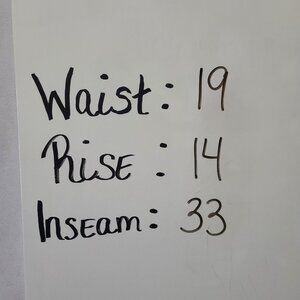 Waist: 19
Rise: 14
Inseam: 33